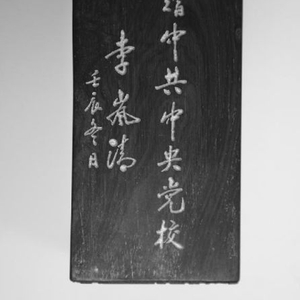 中共中央党校
李岚清
壬辰冬日